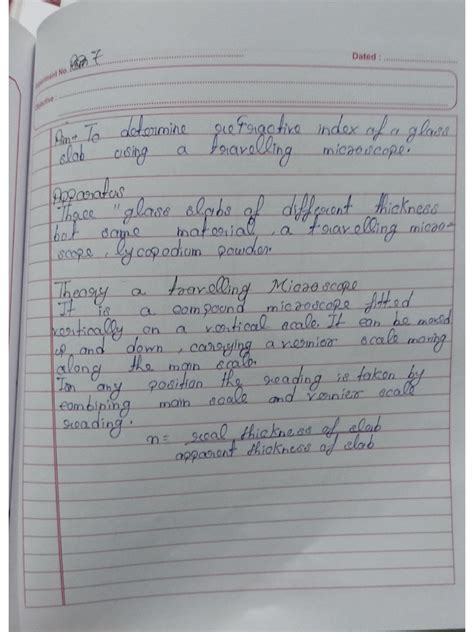 Experiment No. 7
Dated :
Objective :
Aim → To determine refractive index of a glass
slab using a travelling microscope.
Apparatus
Three "glass slabs of different thickness
but same material, a travelling micro-
scope, lycopodium powder.
Theory a travelling Microscope
It is a compound microscope fitted
vertically on a vertical scale. It can be moved
up and down, carrying a vernier scale moving
along the main scale.
In any position the reading is taken by
combining main scale and vernier scale
reading.
n = real thickness of slab
apparent thickness of slab